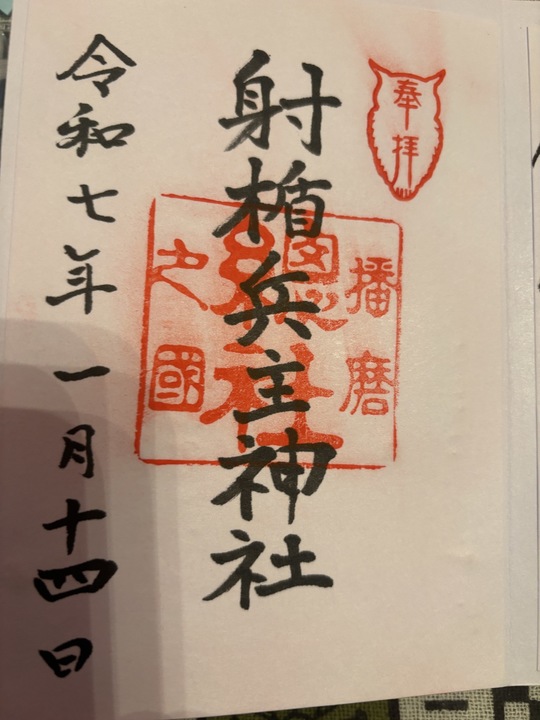 奉拝
播磨
總社
之國
射楯兵主神社
令和七年一月十四日